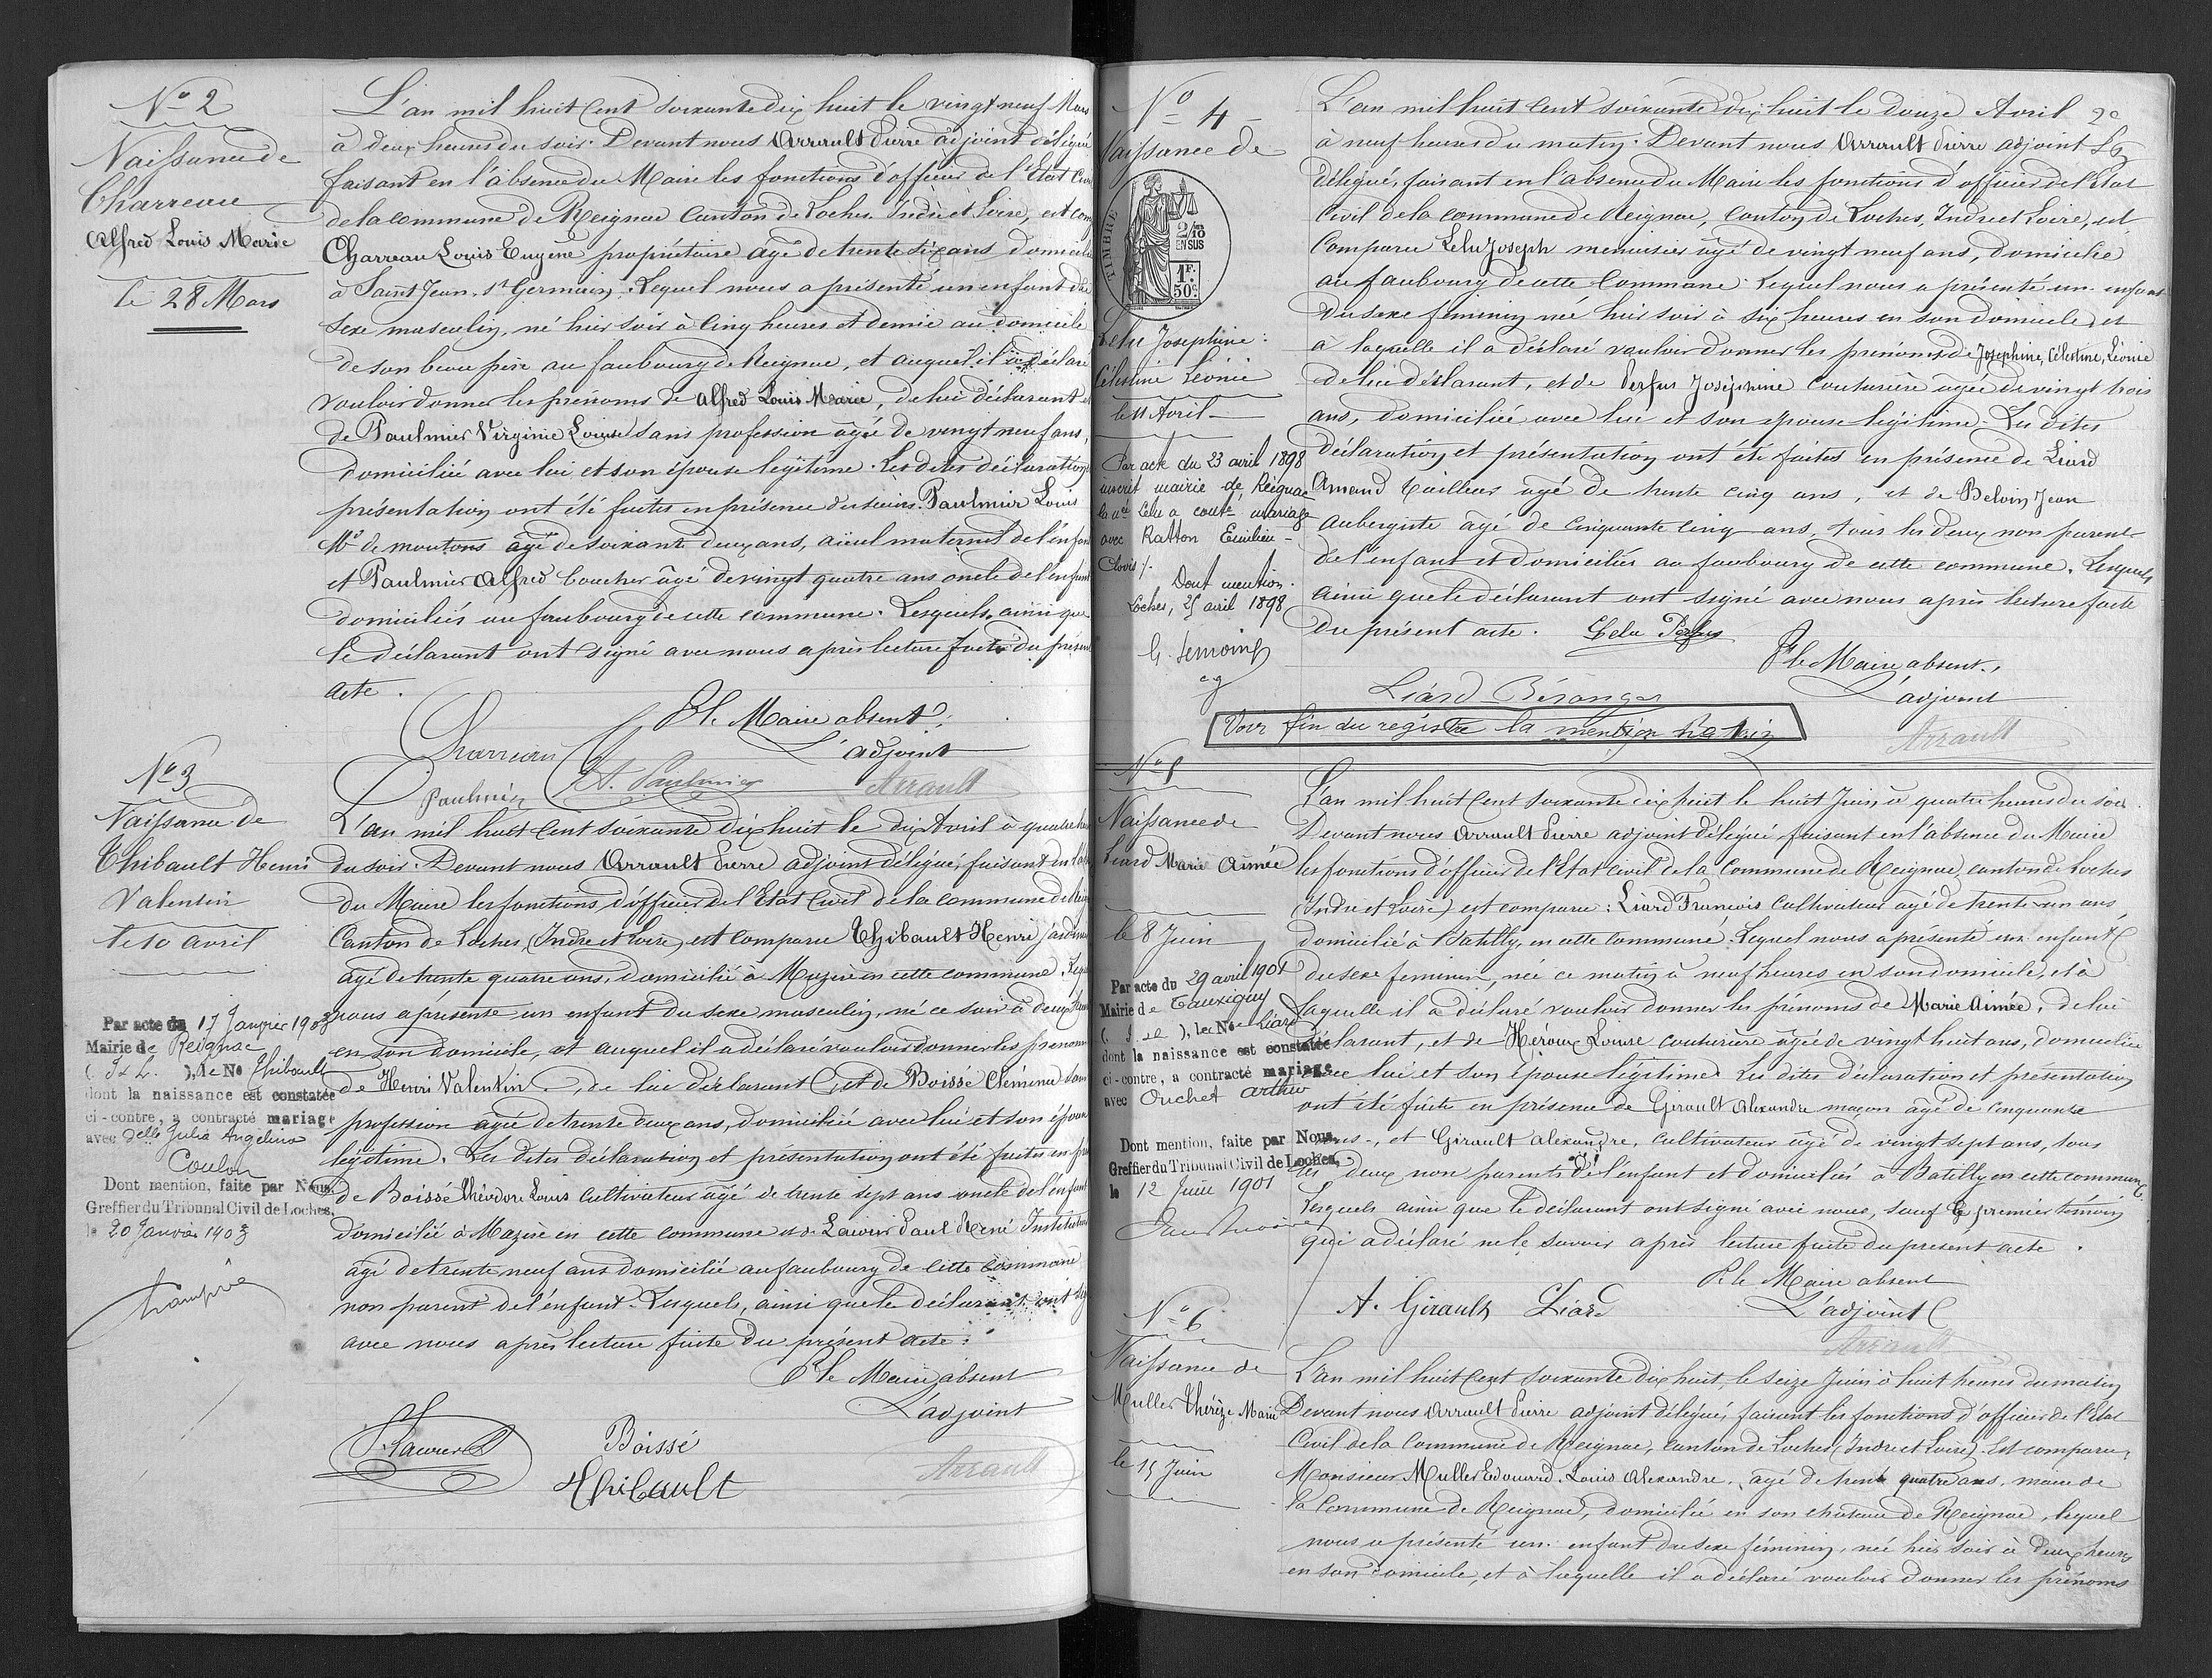 N° 2
Naissance de
Charreau
Alfred Louis Marie
le 28 Mars
L'an mil huit Cent soixante dix huit le vingt neuf Mars
à deux heures du soir. Devant nous Arrault Pierre adjoint délégué
faisant en l'absence du Maire les fonctions d'officier de l'Etat Civ
de la commune de Reignac Canton de Loches Indre et Loire, est com
Charreau Louis Eugène propriétaire agé de trente six ans domicilié
à Saint Jean St Germain. Lequel nous a présenté un enfant du
sexe masculin, né hier soir à cinq heures et demie au domicile
de son beau père au faubourg de Reignac, et auquel il a déclaré
vouloir donner les prénoms de Alfred Louis Marie, de lui déclarant et
de Paulmier Virginie Louise sans profession agée de vingt neuf ans,
domiciliée avec lui et son épouse légitime. Les dites déclaration
présentation ont été faites en présence des sieurs Paulmier Louis
Md de moutons agé de soixante deux ans, aïeul maternel de l'enfant
et Paulmier Alfred boucher âgé de vingt quatre ans oncle de l'enfant
domiciliés au faubourg de cette commune. Lesquels, ainsi que
le déclarant ont signé avec nous après lecture faite du présent
acte.
P. le Maire absent
L'adjoint
Charreau
Paulmier A. Paulmier Arrault
N° 3
Naissance de
Thibault Henri
Valentin
le 10 avril
Par acte du 17 Janvier 1903
Mairie de Reignac
( I & L. ), le No Thibault
dont la naissance est constatée
ci-contre, a contracté mariage
avec delle Julia Angelina
Coulon
Dont mention, faite par Nous,
Greffier du Tribunal Civil de Loches,
le 20 Janvier 1903
L'an mil huit Cent soixante dix huit le dix Avril à quatre
du soir. Devant nous Arrault Pierre adjoint délégué, faisant en
du Maire les fonctions d'officier de l'Etat Civil de la commune de
Canton de Loches, (Indre et Loire) est comparu Thibault Henri
agé de trente quatre ans, domicilié à Mazère en cette commune. Lequel
nous a présenté un enfant du sexe masculin, né ce soir à deux
en son domicile, et auquel il a déclaré vouloir donner les prénoms
de Henri Valentin, de lui déclarant et de Boissé Clémence sans
profession agée de trente deux ans, domiciliée avec lui et son épouse
légitime. Les dites déclaration et présentation ont été faites en
de Boissé Théodore Louis cultivateur agé de trente sept ans oncle de l'enfant
domicilié à Mazère en cette commune et de Laurier Paul René Instituteur
agé de trente neuf ans domicilié au faubourg de cette commune
non parent de l'enfant. Lesquels, ainsi que le déclarant, ont
avec nous après lecture faite du présent acte.
P. le Maire absent
L'adjoint
Boissé
Thibault
Arrault
N° 4
Naissance de
TIMBRE
2/10
EN SUS
1F.
50c.
Lelu Joséphine
Célestine Léonie
le 11 Avril
Par acte du 23 avril 1898
inscrit mairie de Reignac
Lelu a conté mariage
avec Ratton Emilien
Clovis
Dont mention.
Loches, 25 avril 1898
L'an mil huit Cent soixante dix huit le douze Avril
à neuf heures du matin. Devant nous Arrault Pierre adjoint
délégué, faisant en l'absence du Maire les fonctions d'officier de l'Etat
Civil de la commune de Reignac, Canton de Loches, Indre et Loire, est
comparu Lelu Joseph menuisier agé de vingt neuf ans, domicilié
au faubourg de cette Commune. Lequel nous a présenté un enfant
du sexe féminin née hier soir à six heures en son domicile, et
à laquelle il a déclaré vouloir donner les prénoms de Joséphine, Célestine, Léonie
de lui déclarant, et de Perfus Joséphine couturière agée de vingt trois
ans, domiciliée avec lui et son épouse légitime. Les dites
déclaration et présentation ont été faites en présence de Liard
Amand tailleur agé de trente cinq ans, et de Jean
Aubergiste agé de cinquante cinq ans, tous les deux non parents
de l'enfant et domiciliés au faubourg de cette commune. Lesquels
ainsi que le déclarant ont signé avec nous après lecture faite
du présent acte. Lelu Perfus
P. le Maire absent.
L'adjoint
Liard
Voir fin du registre la mention
Arrault
N° 5
Naissance de
Liard Marie Aimée
le 8 Juin
Par acte du 29 avril 1901
Mairie de Tauxigny
( ), le No Liard
dont la naissance est constatée
ci-contre, a contracté mariage
avec Ouchet Arthur
Dont mention, faite par Nous,
Greffier du Tribunal Civil de Loches,
le 12 Juin 1901
L'an mil huit Cent soixante dix huit le huit Juin à quatre heures du soir
Devant nous Arrault Pierre adjoint délégué, faisant en l'absence du Maire
les fonctions d'officier de l'Etat Civil de la Commune de Reignac, canton de Loches
(Indre et Loire) est comparu : Liard François Cultivateur agé de trente un ans
domicilié à Batilly, en cette commune. Lequel nous a présenté un enfant
du sexe féminin, née ce matin à neuf heures en son domicile, et à
laquelle il a déclaré vouloir donner les prénoms de Marie Aimée, de lui
déclarant, et de Héroux Louise couturière agée de vingt huit ans, domiciliée
avec lui et son épouse légitime. Les dites déclaration et présentation
ont été faites en présence de Girault Alexandre maçon agé de cinquante
ans, et Girault Alexandre, cultivateur agé de vingt sept ans, tous
les deux non parents de l'enfant et domiciliés à Batilly en cette commune.
Lesquels ainsi que le déclarant ont signé avec nous, sauf le premier témoin
qui a déclaré ne le savoir après lecture faite du présent acte.
P. le Maire absent
A. Girault Liard L'adjoint
Arrault
N° 6
Naissance de
Muller Thérèze Marie
le 15 Juin
L'an mil huit Cent soixante dix huit, le seize Juin à huit heures du matin
Devant nous Arrault Pierre adjoint délégué, faisant les fonctions d'officier de l'Etat
Civil de la Commune de Reignac, canton de Loches (Indre et Loire). Est comparu,
Monsieur Muller Edouard Louis Alexandre, agé de trente quatre ans, maire de
la Commune de Reignac, domicilié en son chateau de Reignac, lequel
nous a présenté un enfant du sexe féminin, née hier soir à deux heures
en son domicile, et à laquelle il a déclaré vouloir donner les prénoms